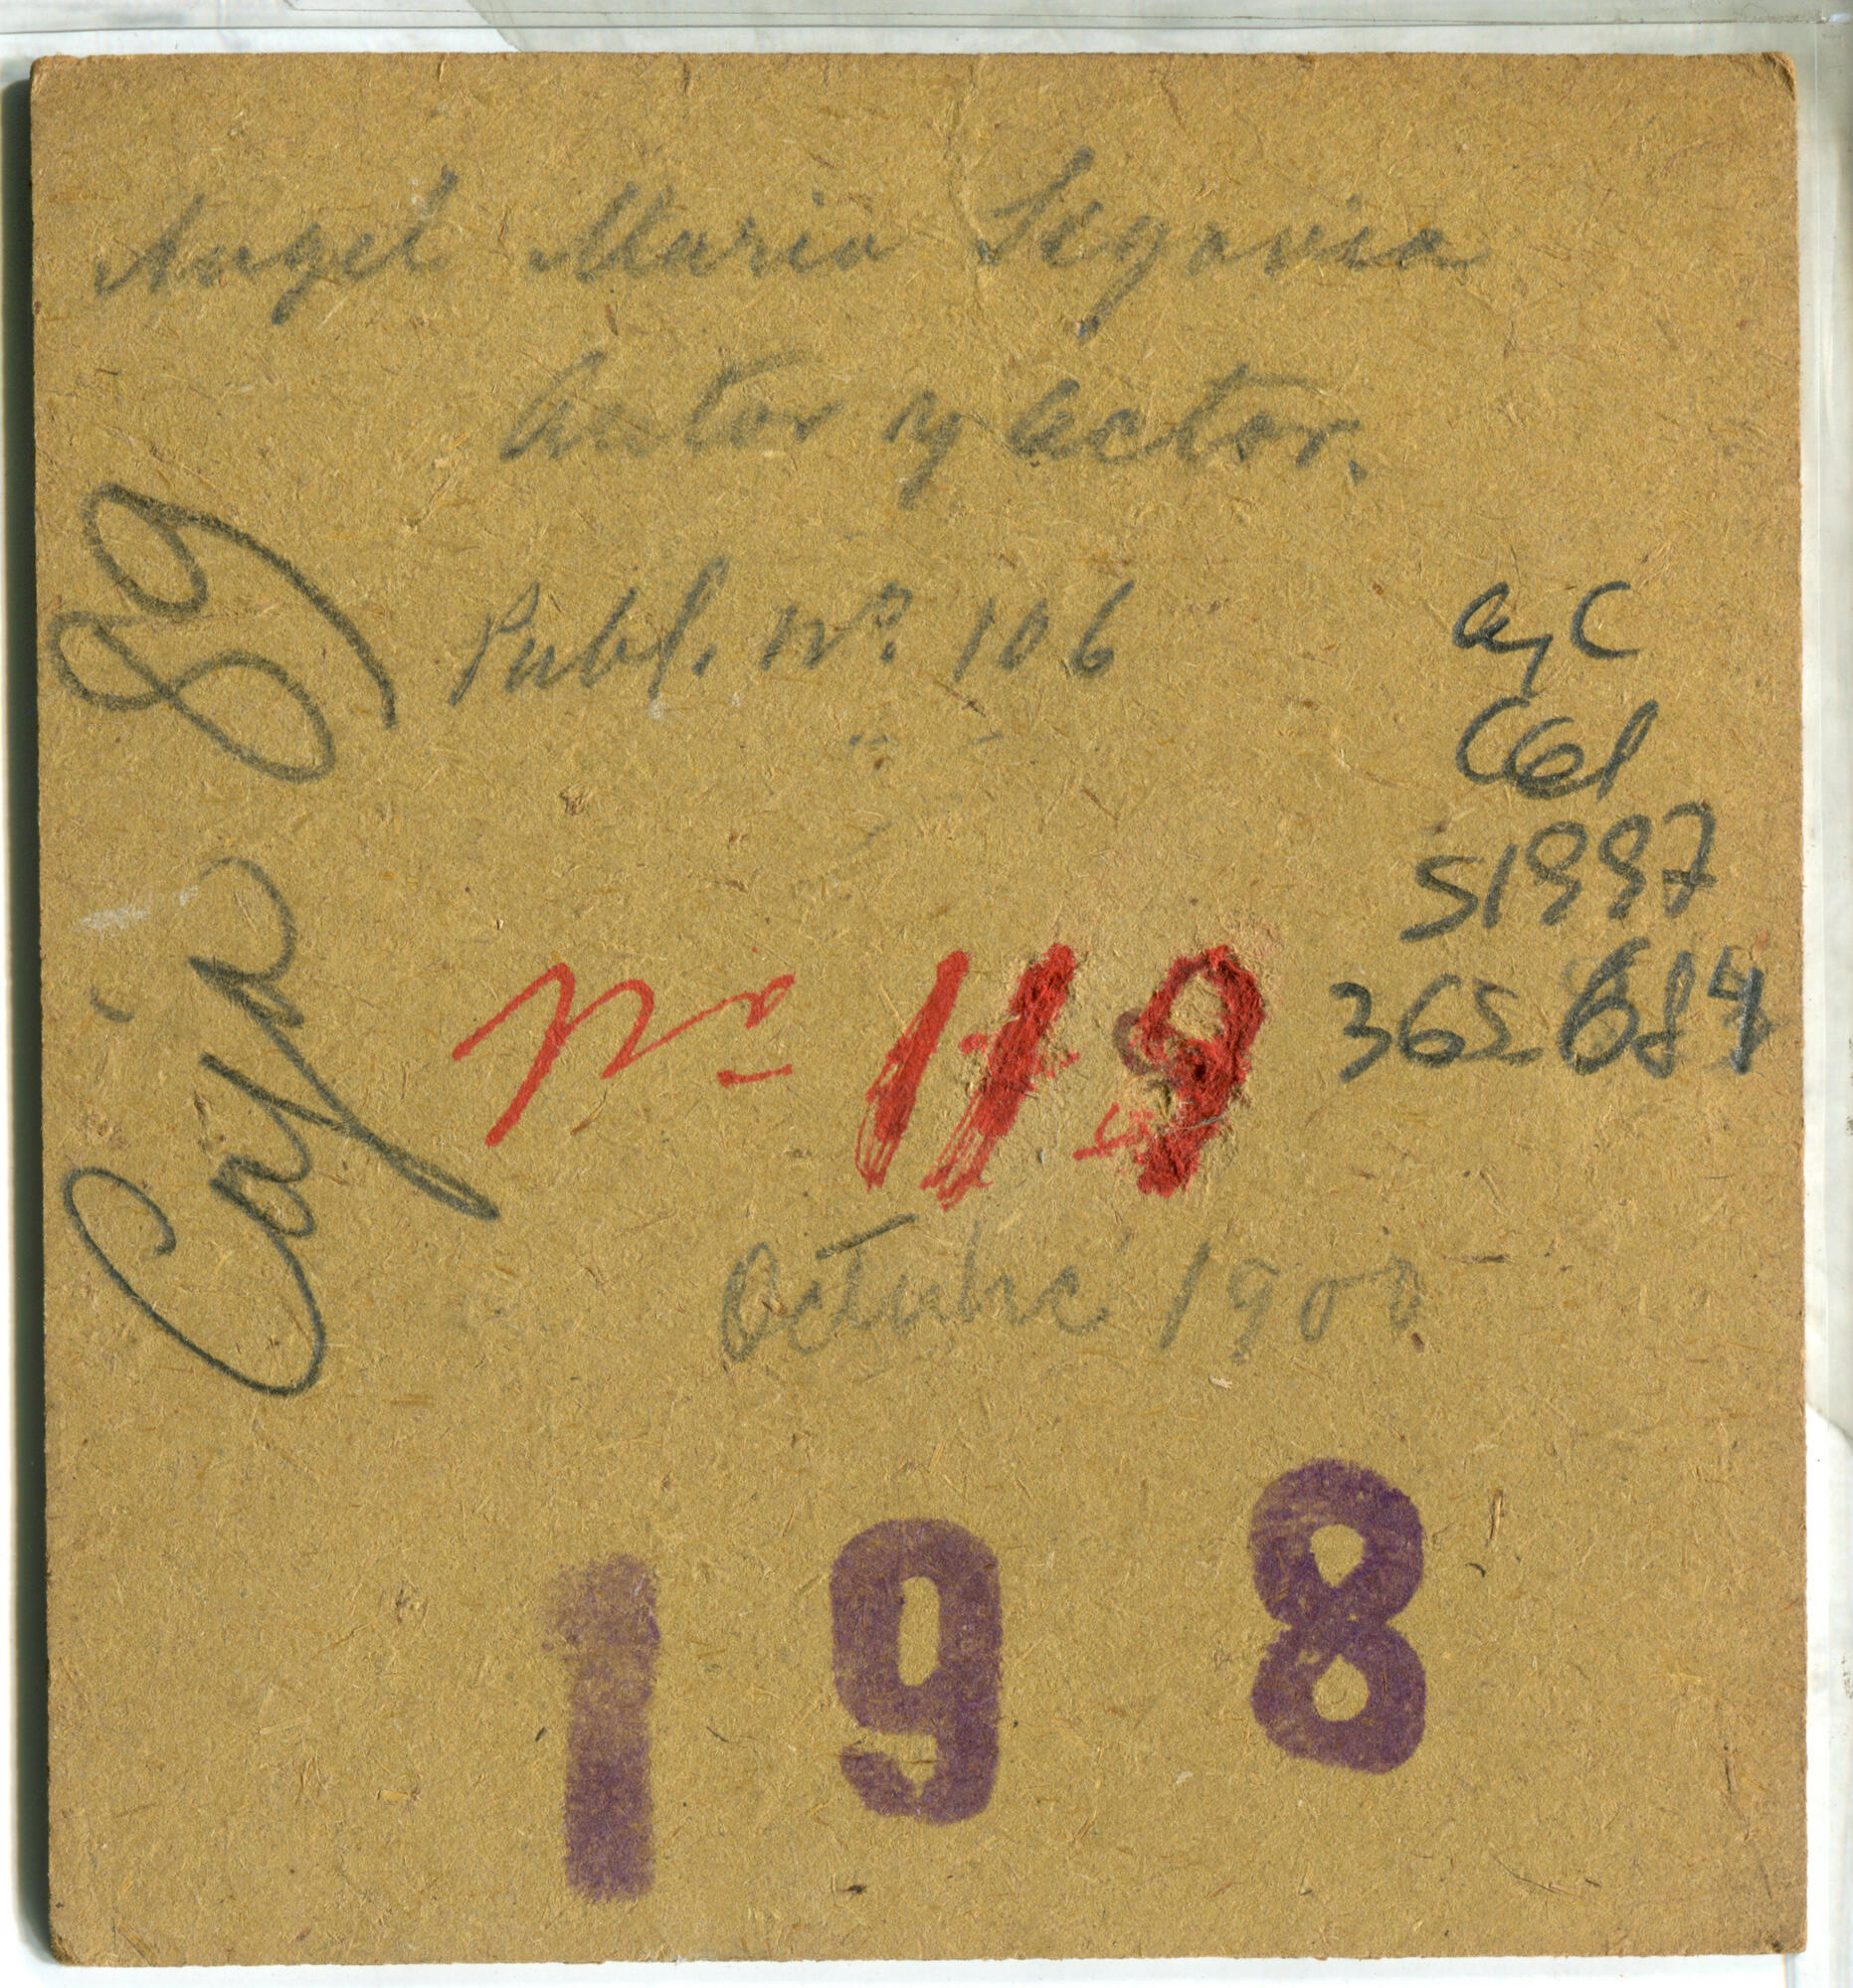 Angel Maria Segovia
Autor y actor.
Publ. Nº 106
Caja 89
C61
51997
365
Nº 119
Octubre 1900
198